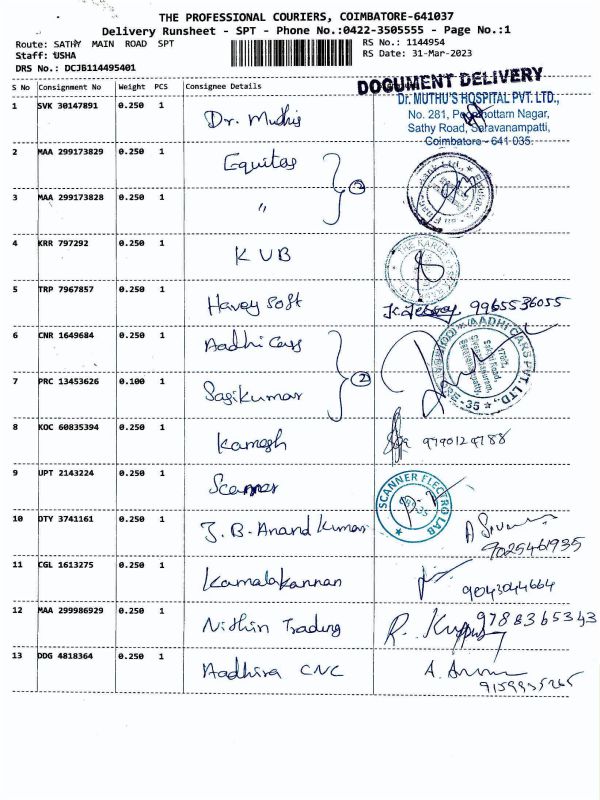 THE PROFESSIONAL COURIERS, COIMBATORE-641037
Delivery Runsheet - SPT - Phone No.:0422-3505555 - Page No.:1
Route: SATHY MAIN ROAD SPT
RS No.: 1144954
Staff: USHA
RS Date: 31-Mar-2023
DRS No.: DCJB114495401
S No Consignment No Weight PCS Consignee Details
DOCUMENT DELIVERY
1 SVK 30147891 0.250 1 Dr. Muthus
Dr. MUTHU'S HOSPITAL PVT. LTD.,
No. 281, Nagar,
Sathy Road, Saravanampatti,
Coimbatore - 641 035.
2 MAA 299173829 0.250 1 Equitas
3 MAA 299173828 0.250 1 "
2
4 KRR 797292 0.250 1 KVB
5 TRP 7967857 0.250 1 Havey Soft 9965536055
6 CNR 1649684 0.250 1 Aadhi Cars
7 PRC 13453626 0.100 1 Sasikumar
2
AADHI CARS PVT. LTD.,
8 KOC 60835394 0.250 1 Kamesh
9 UPT 2143224 0.250 1 Scanner
SCANNER ELECTRO LAB
10 DTY 3741161 0.250 1 J.B. Anand Kumar
9025461935
11 CGL 1613275 0.250 1 Kamalakannan
9043044664
12 MAA 299986929 0.250 1 Nithin Trading
9788365343
13 DDG 4818364 0.250 1 Aadhira CNC